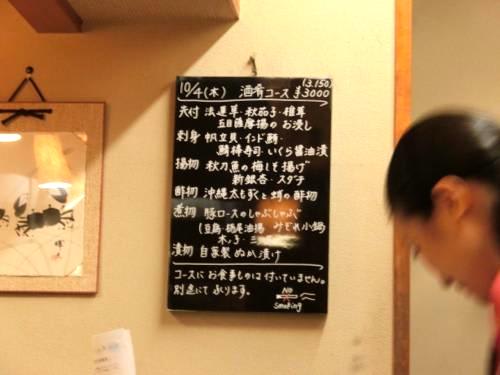 10/4(木) 酒肴コース (3,150) ¥3000
先付 法蓮草・秋茄子・椎茸
五目薩摩揚のお浸し
刺身 帆立貝・インド鮪・
鯖棒寿司・いくら醤油漬
揚物 秋刀魚の梅しそ揚げ
新銀杏・スダチ
酢物 沖縄太もずくと蛸の酢物
煮物 豚ロースのしゃぶしゃぶ
(豆腐・栃尾油揚 みぞれ小鍋
木ノ子・三
漬物 自家製ぬか漬け
コースにお食事ものは付いていません。
別途にて承ります。
No
smoking